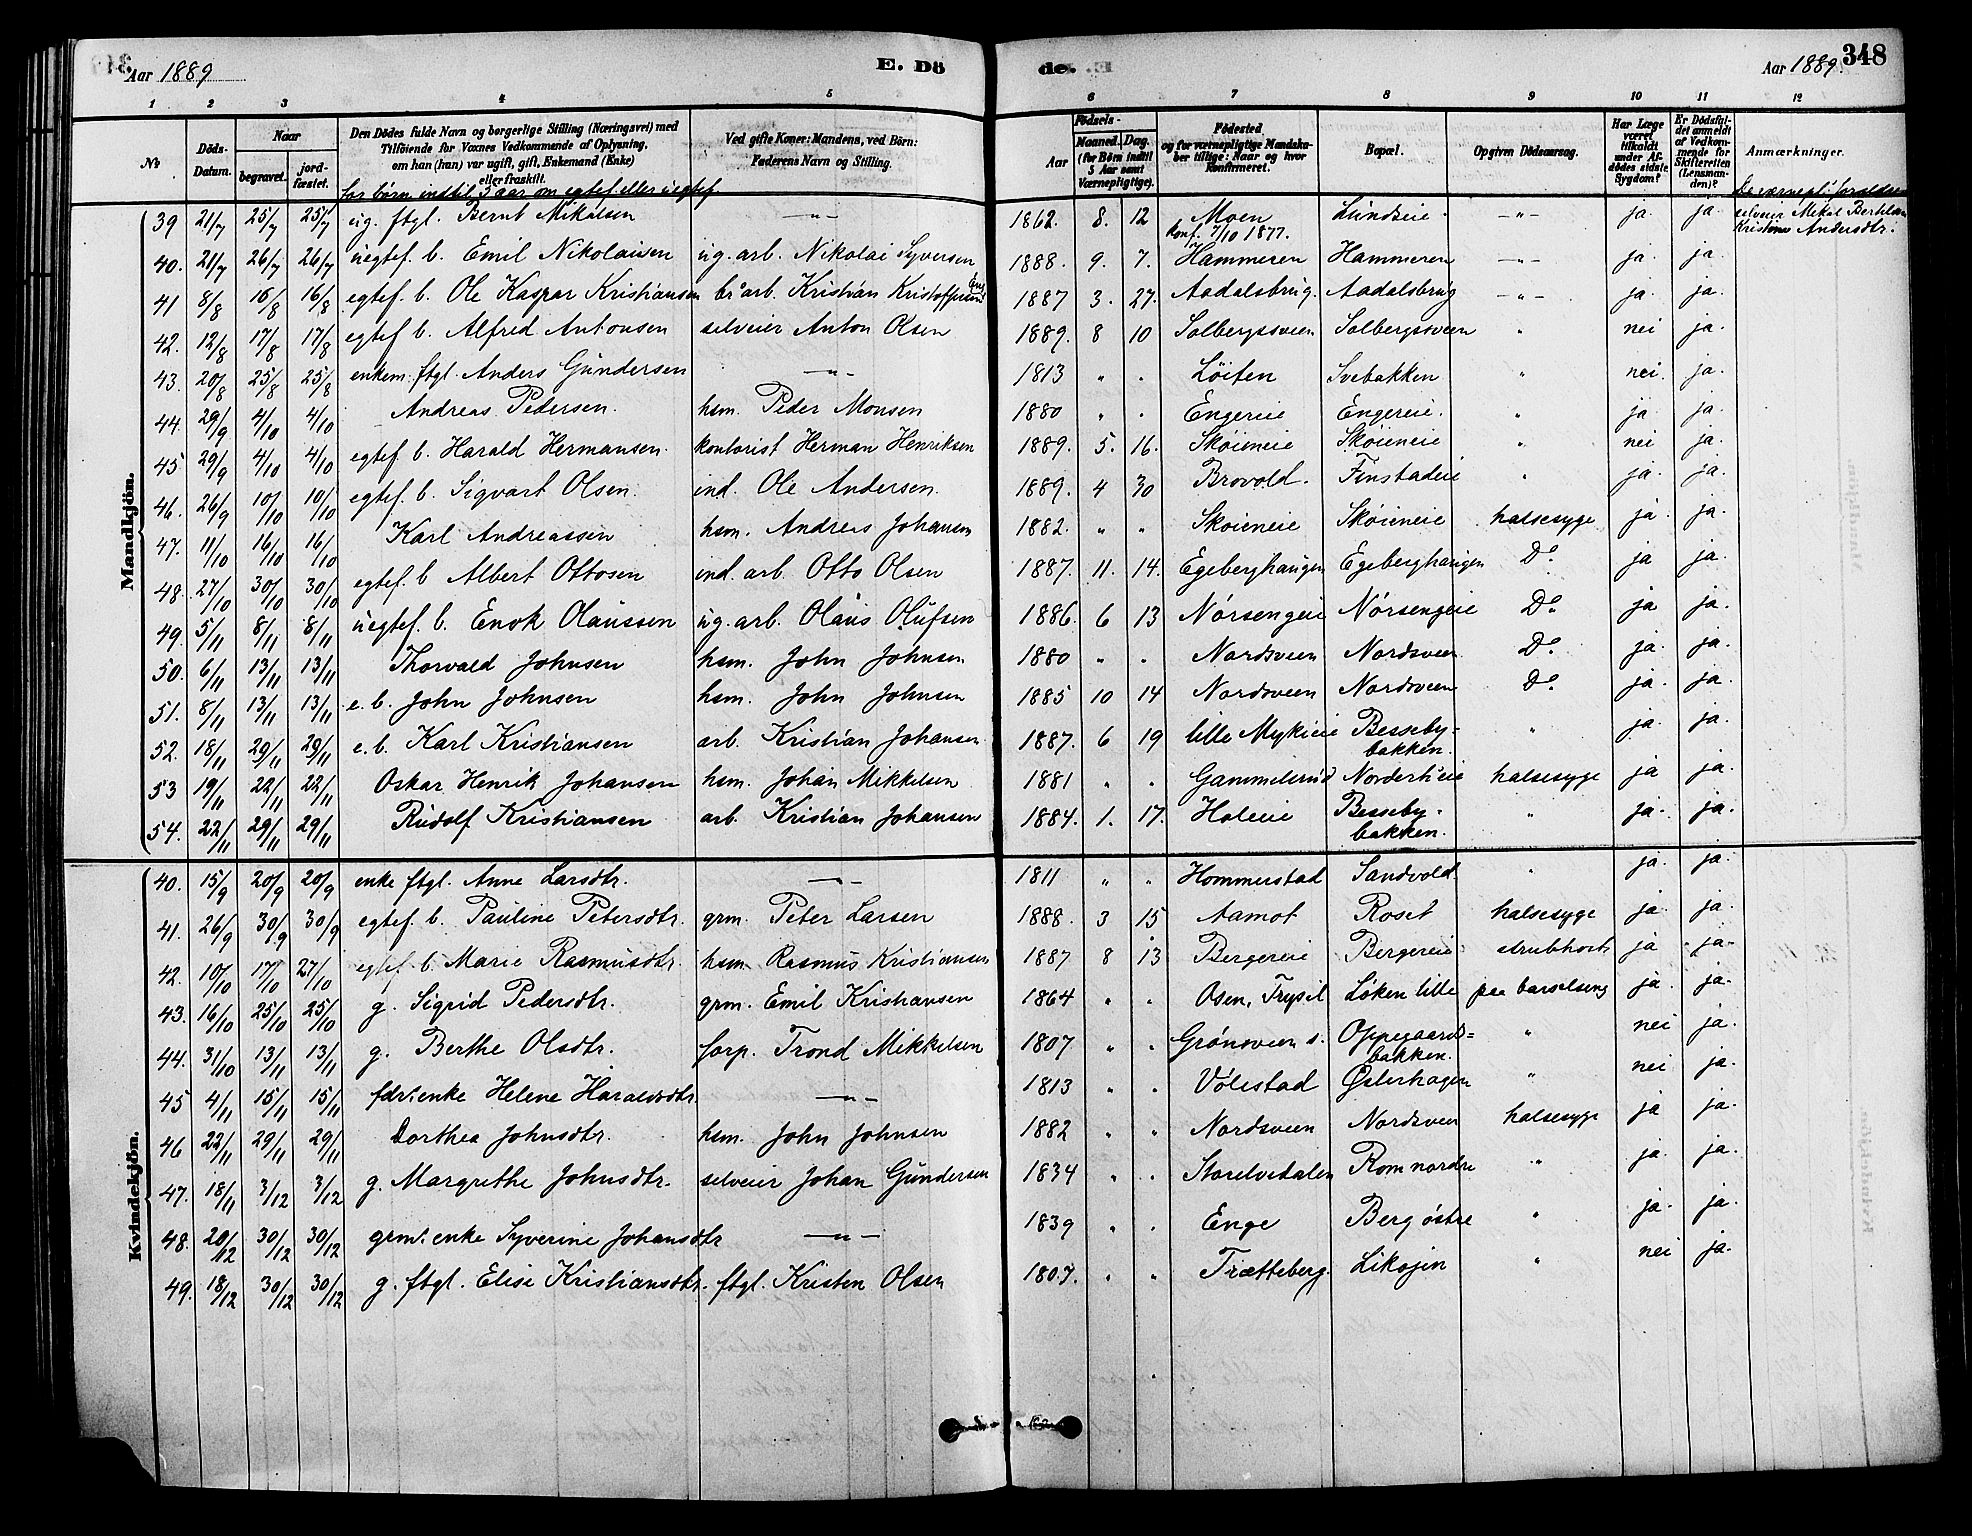 Aar 1889
E. Dö
de.
Aar 1889.
348
1 2 3 4 5 6 7 8 9 10 11 12
No
Döds-Datum.
Naar
begravet.
jord-fæstet.
Den Dödes fulde Navn og borgerlige Stilling (Næringsvei) med
Tilföiende for Voxnes Vedkommende af Oplysning,
om han (hun) var ugift, gift, Enkemand (Enke)
eller fraskilt.
for börn indtil 2 aar om egtef. eller uegtef.
Ved gifte Koner: Mandens, ved Börn:
Faderens Navn og Stilling.
Födsels-
Aar
Maaned. Dag.
(for Börn indtil
5 Aar samt
Værnepligtige).
Födested
og for værnepligtige Mandska-
ber tillige: Naar og hvor
Konfirmeret.
Bopæl.
Opgiven Dödsaarsag.
Har Læge
været
tilkaldt
under Af-
dödes sidste
Sygdom?
Er Dödsfal-
det anmeldt
af Vedkom-
mende for
Skifteretten
(Lensman-
den)?
Anmærkninger.
De værnepl. forældre
Mandkjön.
39 21/7 25/7 25/7 ug. ftgl. Bernt Mikalsen -"- 1862. 8. 12 Moen Lundseie -"- ja. ja. selveier Mikal Bertelsen
Konf. 7/10 1877. Kristine Andersdtr.
40. 21/7 26/7 26/7 uegtef. b. Emil Nikolaisen ug. arb. Nikolai Syversen 1888. 9. 7. Hammeren Hammeren -"- ja. ja.
41 8/8 16/8 16/8 egtef. b. Ole Kaspar Kristiansen arb. Kristian Kristoffersen 1887 3. 27. Aadalsbrug. Aadalsbrug -"- ja. ja.
42. 12/8 17/8 17/8 egtef b. Alfred Antonsen selveier Anton Olsen 1889. 8 10 Solbergsveen Solbergsveen " nei ja.
43. 20/8 25/8 25/8 enkem. ftgl. Anders Gundersen -"- 1813 " " Löiten Svebakken " nei. ja.
44. 29/9 4/10 4/10 Andreas Pedersen. hsm. Peder Monsen 1880 " " Engereie Engereie. " ja. ja.
45 29/9 4/10 4/10 egtef. b. Harald Hermansen. kontorist Herman Henriksen 1889. 5. 16. Skøieneie Skøieneie " nei ja.
46. 26/9 10/10 10/10 egtef. b. Sigvart Olsen. ind. Ole Andersen. 1889. 4 30 Brovold. Finstadeie " ja. ja.
47. 11/10 16/10 16/10 Karl Andreassen hsm. Andreas Johansen 1882. " " Skøieneie Skøieneie halsesyge ja. ja.
48. 27/10 30/10 30/10 egtef. b Albert Ottosen ind. arb. Otto Olsen 1887. 11. 14. Egeberghaugen Egeberghaugen Do. ja ja.
49. 5/11 8/11 8/11 uegtef. b. Enok Olaussen ug. arb. Olaus Olufsen 1886. 6 13 Nørsengeie Nørsengeie Do. ja ja.
50. 6/11 13/11 13/11 Thorvald Johnsen hsm. John Johnsen 1880 " " Nordsveen Nordsveen Do. ja. ja.
51. 8/11 13/11 13/11 e. b. John Johnsen hsm. John Johnsen 1885 10 14 Nordsveen Nordsveen Do. ja. ja.
52. 18/11 29/11 29/11 e. b. Karl Kristiansen arb. Kristian Johansen 1887. 6 19 lille Mykleie Besseby-
bakken. " ja. ja.
53 19/11 22/11 22/11 Oskar Henrik Johansen hsm. Johan Mikkelsen 1881 " " Gammelsrud halsesyge ja ja.
54. 22/11 29/11 29/11 Rudolf Kristiansen arb. Kristian Johansen 1884. 1. 17. Holeie Besseby-
bakken. " ja. ja.
Kvindekjön.
40. 15/9 20/9 20/9 enke ftgl. Anne Larsdtr. -"- 1811 " " Hommerstad Sandvold. " ja. ja.
41. 26/9 30/9 30/9 egtef b. Pauline Petersdtr. grm. Peter Larsen 1888. 3 15 Aamot Roset halsesyge ja. ja.
42. 10/10 17/10 27/10 egtef. b. Marie Rasmusdtr. hsm. Rasmus Kristiansen 1887 8 13 Bergereie Bergereie strubhoste ja ja.
43. 16/10 25/10 25/10 g. Sigrid Pedersdtr. grm. Emil Kristiansen 1864 " " Osen, Trysil Løken lille paa barselseng ja. ja.
44. 31/10 13/11 13/11 g. Berthe Olsdtr. forp. Trond Mikkelsen 1807 " " Grønsveen s. Oppegaards-
bakken. " nei ja.
45 4/11 15/11 15/11 enke Helene Haraldsdtr. -"- 1813 " " Volestad Østerhagen " nei ja.
46 22/11 29/11 29/11 Dorthea Johnsdtr. hsm. John Johnsen 1882 " " Nordsveen Nordsveen halsesyge ja ja.
47. 18/11 3/12 3/12 g. Margrethe Johnsdtr. selveier Johan Gundersen 1834 " " Storelvedalen Rom nordre " ja. ja.
48. 20/12 30/12 30/12 grm. enke Syverine Johansdtr -"- 1839 " " Enge Berg østre " ja. ja.
49. 18/12 30/12 30/12 g. ftgl. Elise Kristiansdtr. ftgl. Kristen Olsen 1807. " " Trætteberg. " nei ja.